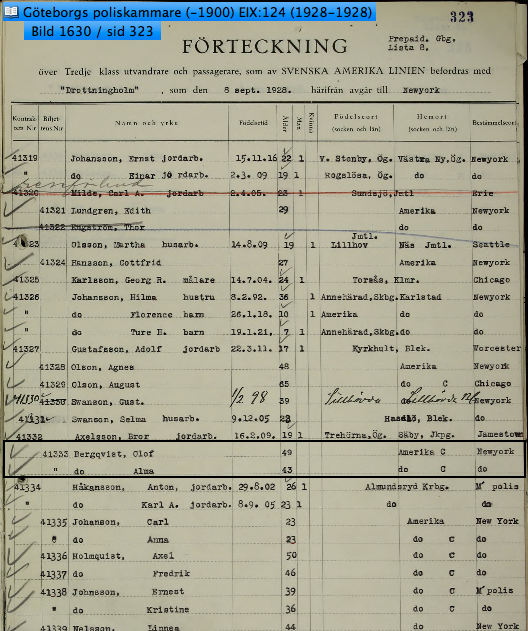 Göteborgs poliskammare (-1900) EIX:124 (1928-1928)
Bild 1630 / sid 323
323
Prepaid. Gbg.
Lista 8.
FÖRTECKNING
över Tredje klass utvandrare och passagerare, som av SVENSKA AMERIKA LINIEN befordras med
"Drottningholm" , som den 8 sept. 1928. härifrån avgår till Newyork
Kontrakttets Nr Biljettens Nr Namn och yrke Födelsetid Ålder Man Kvinna Födelseort (socken och län) Hemort (socken och län) Bestämmelseort
41319 Johansson, Ernst jordarb. 15.11.16 22 1 V. Stenby, Ög. Västra Ny,Ög. Newyork
" do Einar jordarb. 2.3. 09 19 1 Rogslösa, Ög. do do
41320 Milde, Carl A. jordarb 2.4.05. 23 1 Sundsjö,Jmtl Erie
41321 Lundgren, Edith 29 Amerika Newyork
41322 Engström, Thor do do
41323 Olsson, Martha husarb. 14.8.09 19 1 Jmtl. Lillhov Näs Jmtl. Seattle
41324 Hansson, Gottfrid 27 Amerika Newyork
41325 Karlsson, Georg R. målare 14.7.04. 24 1 Torsås, Klmr. Chicago
41326 Johansson, Hilma hustru 8.2.92. 36 1 Annehärad,Skbg.Karlstad Newyork
" do Florence barn 26.1.18. 10 1 Amerika do do
" do Ture H. barn 19.1.21, 7 1 Annehärad,Skbg.do do
41327 Gustafsson, Adolf jordarb 22.3.11. 17 1 Kyrkhult, Blek. Worcester
41328 Olson, Agnes 48 Amerika Newyork
41329 Olson, August 65 do C Chicago
41330 41330 Swanson, Gust. 1/2 98 39 do Newyork
41331 Swanson, Selma husarb. 9.12.05 22 Blek. do
41332 Axelsson, Bror jordarb. 16.2.09. 19 1 Trehörna,Ög. Säby, Jkpg. Jamestown
41333 Bergqvist, Olof 49 Amerika C Newyork
" do Alma 43 do C do
41334 Håkansson, Anton, jordarb. 29.8.02 26 1 Almundsryd Krbg. M polis
" do Karl A. jordarb. 8.9. 05 23 1 do do
41335 Johanson, Carl 23 Amerika New York
" do Anna 23 do C do
41336 Holmquist, Axel 50 do C do
41337 do Fredrik 46 do C do
41338 Johnsson, Ernest 39 do C M polis
" do Kristine 36 do C do
41339 Nelsson, Linnea 44 do New York